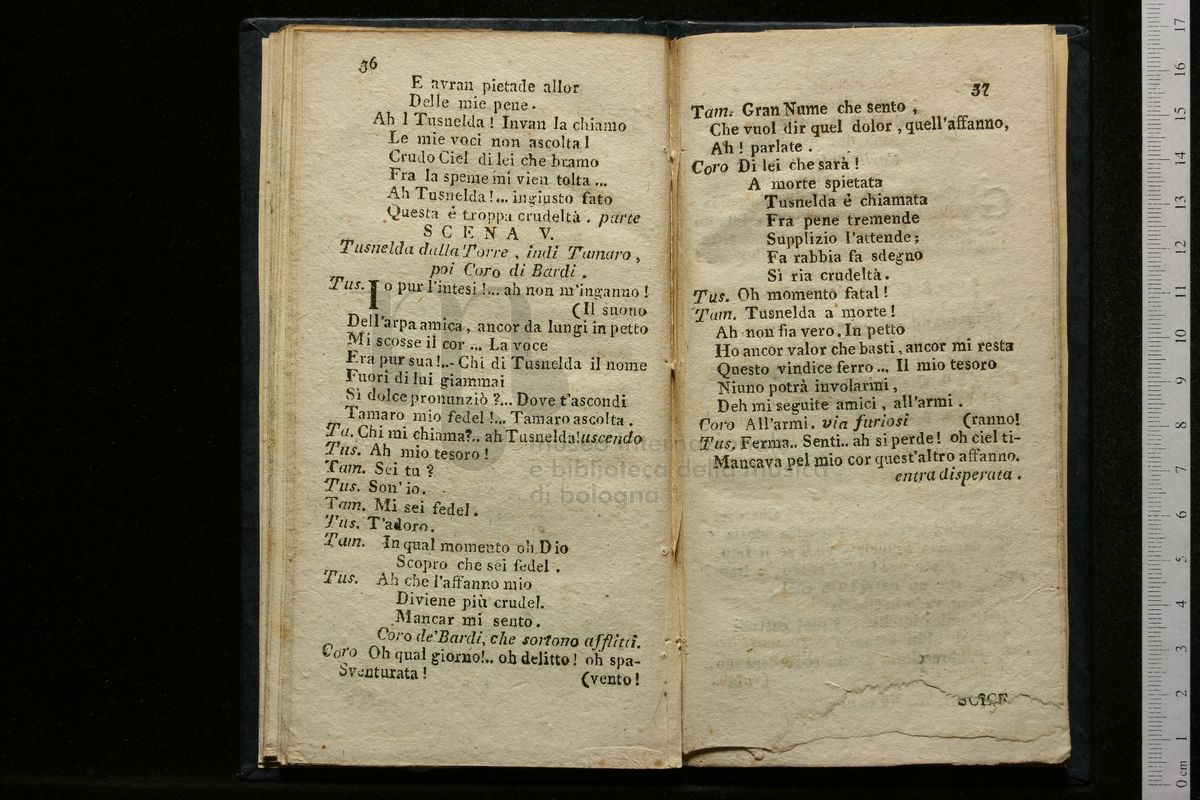 36
E avran pietade allor
Delle mie pene.
Ah ! Tusnelda! Invan la chiamo
Le mie voci non ascolta!
Crudo Ciel di lei che bramo
Fra la speme mi vien tolta ...
Ah Tusnelda!... ingiusto fato
Questa é troppa crudeltà. parte
SCENA V.
Tusnelda dalla Torre, indi Tamaro,
poi Coro di Bardi.
Tus. Io pur l'intesi!... ah non m'inganno!
(Il suono
Dell'arpa amica, ancor da lungi in petto
Mi scosse il cor ... La voce
Era pur sua!..- Chi di Tusnelda il nome
Fuori di lui giammai
Sì dolce pronunziò?... Dove t'ascondi
Tamaro mio fedel!... Tamaro ascolta.
Ta. Chi mi chiama?.. ah Tusnelda! uscendo
Tus. Ah mio tesoro!
Tam. Sei tu?
Tus. Son' io.
Tam. Mi sei fedel.
Tus. T'adoro.
Tam. In qual momento oh Dio
Scopro che sei fedel.
Tus. Ah che l'affanno mio
Diviene più crudel.
Mancar mi sento.
Coro de' Bardi, che sortono afflitti.
Coro Oh qual giorno!.. oh delitto! oh spa-
Sventurata! (vento!
37
Tam. Gran Nume che sento,
Che vuol dir quel dolor, quell'affanno,
Ah! parlate.
Coro Di lei che sarà!
A morte spietata
Tusnelda é chiamata
Fra pene tremende
Supplizio l'attende;
Fa rabbia fa sdegno
Sì ria crudeltà.
Tus. Oh momento fatal!
Tam. Tusnelda a morte!
Ah non fia vero. In petto
Ho ancor valor che basti, ancor mi resta
Questo vindice ferro ... Il mio tesoro
Niuno potrà involarmi,
Deh mi seguite amici, all'armi.
Coro All'armi. via furiosi (ranno!
Tus. Ferma.. Senti.. ah si perde! oh ciel ti-
Mancava pel mio cor quest'altro affanno.
entra disperata.
museo internazionale
e biblioteca della musica
di bologna
17
16
15
14
13
12
11
10
9
8
7
6
5
4
3
2
1
0 cm